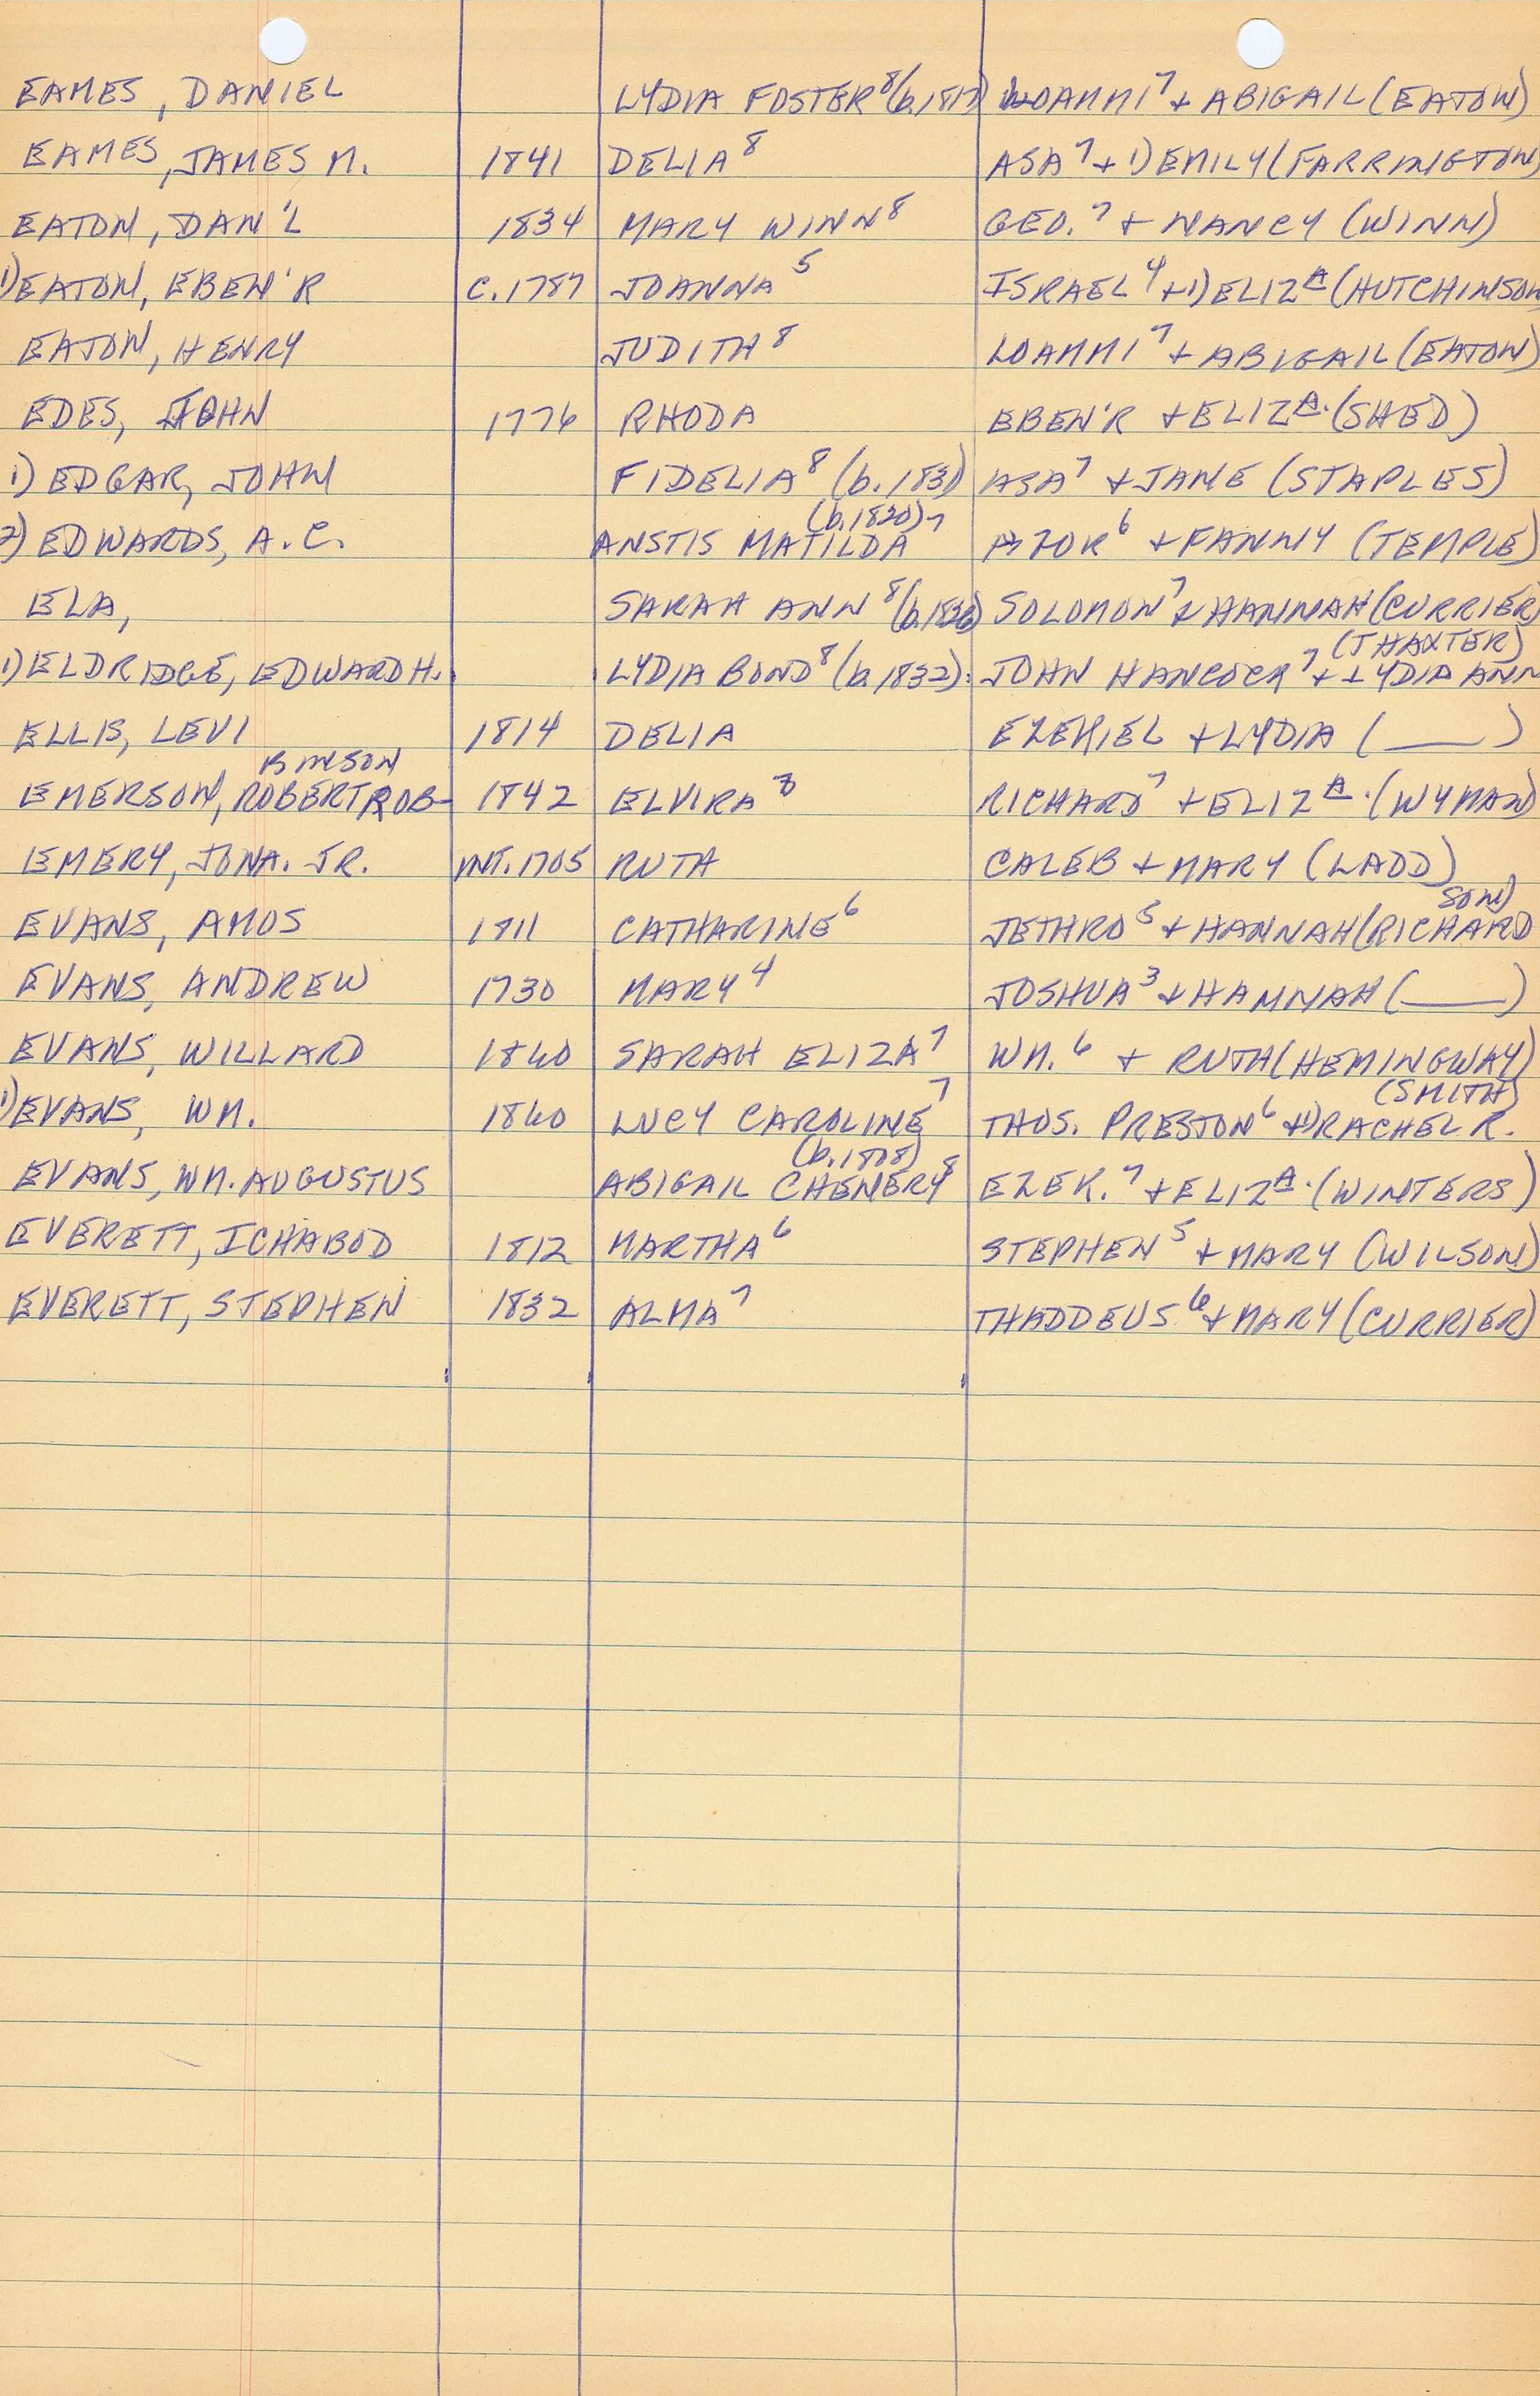 EAMES, DANIEL LYDIA FOSTER⁸ (b.1817) LOAMMI⁷ + ABIGAIL (EATON)
EAMES, JAMES M. 1841 DELIA⁸ ASA⁷ + 1) EMILY (FARRINGTON
EATON, DAN'L 1834 MARY WINN⁸ GEO.⁷ + NANCY (WINN)
1) EATON, EBEN'R C. 1787 JOANNA⁵ ISRAEL⁴ + 1) ELIZᴬ (HUTCHINSON
EATON, HENRY JUDITH⁸ LOAMMI⁷ + ABIGAIL (EATON)
EDES, JOHN 1776 RHODA EBEN'R + ELIZᴬ. (SHED)
1) EDGAR, JOHN FIDELIA⁸ (b.1831) ASA⁷ + JANE (STAPLES)
2) EDWARDS, A.C. ANSTIS MATILDA (b.1820)⁷ AZOR⁶ + FANNY (TEMPLE)
ELA, SARAH ANN⁸ (b.1836) SOLOMON⁷ + HANNAH (CURRIER)
1) ELDRIDGE, EDWARD H. LYDIA BOND⁸ (b.1832). JOHN HANCOCK⁷ + LYDIA ANN (THAXTER)
ELLIS, LEVI 1814 DELIA EZEKIEL + LYDIA (___)
EMERSON, ROBERT ROB- BINSON 1842 ELVIRA⁸ RICHARD⁷ + ELIZᴬ. (WYMAN)
EMERY, JONA. JR. INT. 1705 RUTH CALEB + MARY (LADD)
EVANS, AMOS 1811 CATHARINE⁶ JETHRO⁵ + HANNAH (RICHARD SON)
EVANS, ANDREW 1730 MARY⁴ JOSHUA³ + HANNAH (___)
EVANS, WILLARD 1840 SARAH ELIZA⁷ WM.⁶ + RUTH (HEMINGWAY)
1) EVANS, WM. 1840 LUCY CAROLINE⁷ THOS. PRESTON⁶ + 1) RACHEL R. (SMITH)
EVANS, WM. AUGUSTUS ABIGAIL CHENERY⁸ (b.1808) EZEK.⁷ + ELIZᴬ. (WINTERS)
EVERETT, ICHABOD 1812 MARTHA⁶ STEPHEN⁵ + MARY (WILSON)
EVERETT, STEPHEN 1832 ALMA⁷ THADDEUS⁶ + MARY (CURRIER)